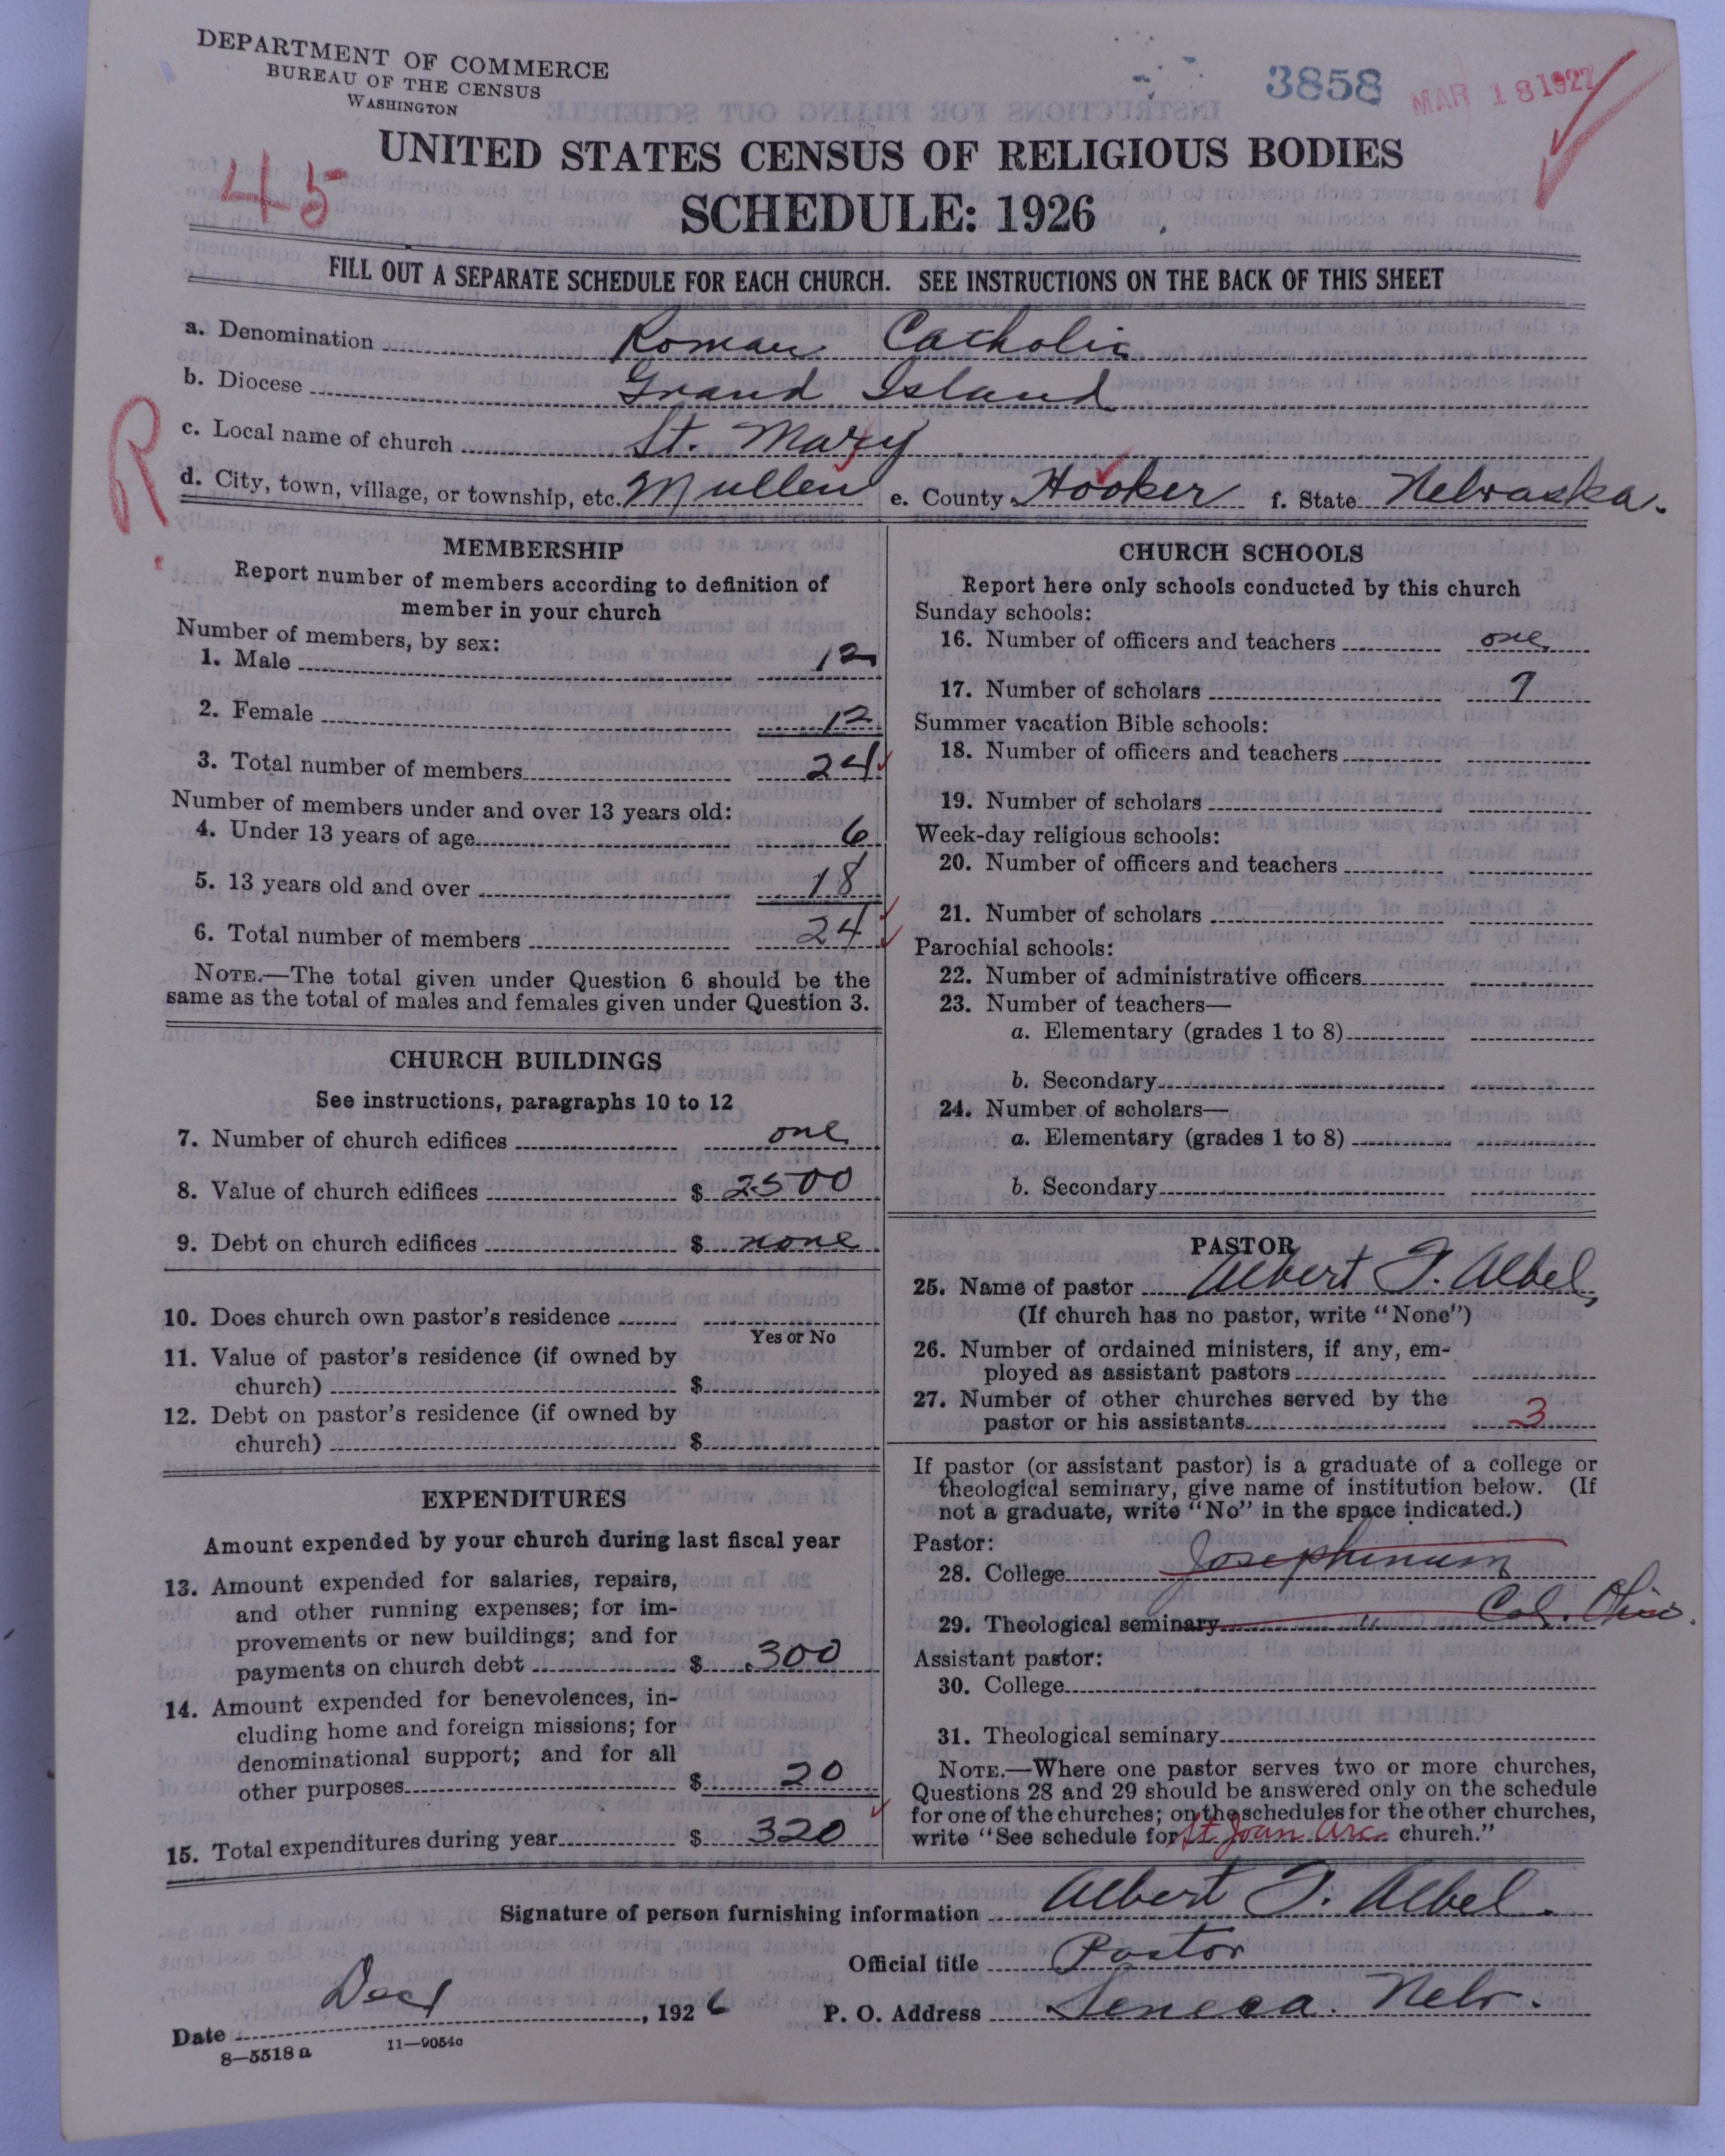 DEPARTMENT OF COMMERCE
BUREAU OF THE CENSUS
WASHINGTON
3858
MAR 18 1927
UNITED STATES CENSUS OF RELIGIOUS BODIES
45
SCHEDULE: 1926
FILL OUT A SEPARATE SCHEDULE FOR EACH CHURCH. SEE INSTRUCTIONS ON THE BACK OF THIS SHEET
a. Denomination Roman Catholic
b. Diocese Grand Island
R
c. Local name of church St. Mary
d. City, town, village, or township, etc. Mullen e. County Hooker f. State Nebraska.
MEMBERSHIP
Report number of members according to definition of
member in your church
Number of members, by sex:
1. Male 12
2. Female 12
3. Total number of members 24
Number of members under and over 13 years old:
4. Under 13 years of age 6
5. 13 years old and over 18
6. Total number of members 24
NOTE.—The total given under Question 6 should be the
same as the total of males and females given under Question 3.
CHURCH BUILDINGS
See instructions, paragraphs 10 to 12
7. Number of church edifices one
8. Value of church edifices $ 2500
9. Debt on church edifices $ none
10. Does church own pastor's residence
Yes or No
11. Value of pastor's residence (if owned by
church) $
12. Debt on pastor's residence (if owned by
church) $
EXPENDITURES
Amount expended by your church during last fiscal year
13. Amount expended for salaries, repairs,
and other running expenses; for im-
provements or new buildings; and for
payments on church debt $ 300
14. Amount expended for benevolences, in-
cluding home and foreign missions; for
denominational support; and for all
other purposes $ 20
15. Total expenditures during year $ 320
CHURCH SCHOOLS
Report here only schools conducted by this church
Sunday schools:
16. Number of officers and teachers one
17. Number of scholars 9
Summer vacation Bible schools:
18. Number of officers and teachers
19. Number of scholars
Week-day religious schools:
20. Number of officers and teachers
21. Number of scholars
Parochial schools:
22. Number of administrative officers
23. Number of teachers—
a. Elementary (grades 1 to 8)
b. Secondary
24. Number of scholars—
a. Elementary (grades 1 to 8)
b. Secondary
PASTOR
25. Name of pastor Albert T. Albel
(If church has no pastor, write "None")
26. Number of ordained ministers, if any, em-
ployed as assistant pastors
27. Number of other churches served by the
pastor or his assistants 3
If pastor (or assistant pastor) is a graduate of a college or
theological seminary, give name of institution below. (If
not a graduate, write "No" in the space indicated.)
Pastor:
28. College Josephinum
29. Theological seminary " Col. Ohio.
Assistant pastor:
30. College
31. Theological seminary
NOTE.—Where one pastor serves two or more churches,
Questions 28 and 29 should be answered only on the schedule
for one of the churches; on the schedules for the other churches,
write "See schedule for St Joan Arc church."
Signature of person furnishing information Albert T. Albel.
Official title Pastor
Date Dec 1, 1926 P. O. Address Seneca. Nebr.
8—5518 a 11—9054c